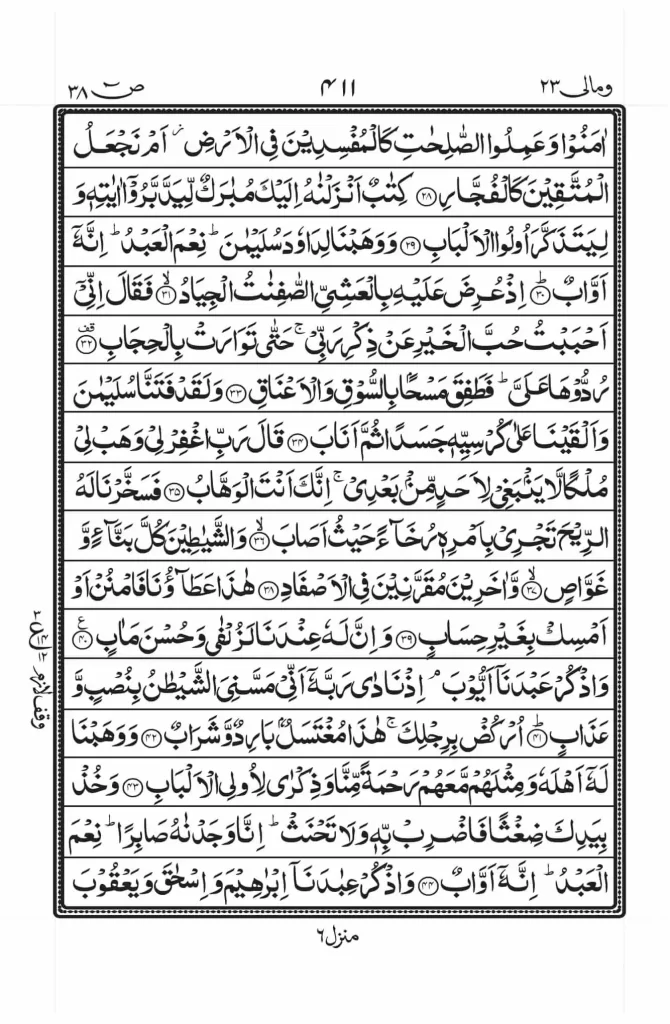 ومالی ۲۳ ۴۱۱ ص ۳۸
اٰمَنُوۡا وَعَمِلُوا الصّٰلِحٰتِ كَالۡمُفۡسِدِيۡنَ فِى الۡاَرۡضِ ز اَمۡ نَجۡعَلُ
الۡمُتَّقِيۡنَ كَالۡفُجَّارِ ﴿۲۸﴾ كِتٰبٌ اَنۡزَلۡنٰهُ اِلَيۡكَ مُبٰرَكٌ لِّيَدَّبَّرُوۡۤا اٰيٰتِهٖ وَ
لِيَتَذَكَّرَ اُولُوا الۡاَلۡبَابِ ﴿۲۹﴾ وَوَهَبۡنَا لِدَاوٗدَ سُلَيۡمٰنَ ؕ نِعۡمَ الۡعَبۡدُ ؕ اِنَّهٗۤ
اَوَّابٌ ؕ﴿۳۰﴾ اِذۡ عُرِضَ عَلَيۡهِ بِالۡعَشِىِّ الصّٰفِنٰتُ الۡجِيَادُ ۙ﴿۳۱﴾ فَقَالَ اِنِّىۡۤ
اَحۡبَبۡتُ حُبَّ الۡخَيۡرِ عَنۡ ذِكۡرِ رَبِّىۡ ۚ حَتّٰى تَوَارَتۡ بِالۡحِجَابِ قف﴿۳۲﴾
رُدُّوۡهَا عَلَىَّ ؕ فَطَفِقَ مَسۡحًۢا بِالسُّوۡقِ وَالۡاَعۡنَاقِ ﴿۳۳﴾ وَلَقَدۡ فَتَنَّا سُلَيۡمٰنَ
وَاَلۡقَيۡنَا عَلٰى كُرۡسِيِّهٖ جَسَدًا ثُمَّ اَنَابَ ﴿۳۴﴾ قَالَ رَبِّ اغۡفِرۡ لِىۡ وَهَبۡ لِىۡ
مُلۡكًا لَّا يَنۡۢبَغِىۡ لِاَحَدٍ مِّنۡۢ بَعۡدِىۡ ۚ اِنَّكَ اَنۡتَ الۡوَهَّابُ ﴿۳۵﴾ فَسَخَّرۡنَا لَهُ
الرِّيۡحَ تَجۡرِىۡ بِاَمۡرِهٖ رُخَآءً حَيۡثُ اَصَابَ ۙ﴿۳۶﴾ وَالشَّيٰطِيۡنَ كُلَّ بَنَّآءٍ وَّ
غَوَّاصٍ ۙ﴿۳۷﴾ وَّاٰخَرِيۡنَ مُقَرَّنِيۡنَ فِى الۡاَصۡفَادِ ﴿۳۸﴾ هٰذَا عَطَآؤُنَا فَامۡنُنۡ اَوۡ
اَمۡسِكۡ بِغَيۡرِ حِسَابٍ ﴿۳۹﴾ وَاِنَّ لَهٗ عِنۡدَنَا لَزُلۡفٰى وَحُسۡنَ مَاٰبٍ ع﴿۴۰﴾
وَاذۡكُرۡ عَبۡدَنَاۤ اَيُّوۡبَ ۘ اِذۡ نَادٰى رَبَّهٗۤ اَنِّىۡ مَسَّنِىَ الشَّيۡطٰنُ بِنُصۡبٍ وَّ
عَذَابٍ ؕ﴿۴۱﴾ اُرۡكُضۡ بِرِجۡلِكَ ۚ هٰذَا مُغۡتَسَلٌۢ بَارِدٌ وَّشَرَابٌ ﴿۴۲﴾ وَوَهَبۡنَا
لَهٗۤ اَهۡلَهٗ وَمِثۡلَهُمۡ مَّعَهُمۡ رَحۡمَةً مِّنَّا وَذِكۡرٰى لِاُولِى الۡاَلۡبَابِ ﴿۴۳﴾ وَخُذۡ
بِيَدِكَ ضِغۡثًا فَاضۡرِبْ بِّهٖ وَلَا تَحۡنَثۡ ؕ اِنَّا وَجَدۡنٰهُ صَابِرًا ؕ نِعۡمَ
الۡعَبۡدُ ؕ اِنَّهٗۤ اَوَّابٌ ﴿۴۴﴾ وَاذۡكُرۡ عِبٰدَنَاۤ اِبۡرٰهِيۡمَ وَاِسۡحٰقَ وَيَعۡقُوۡبَ
وقف لازم
منزل ۶